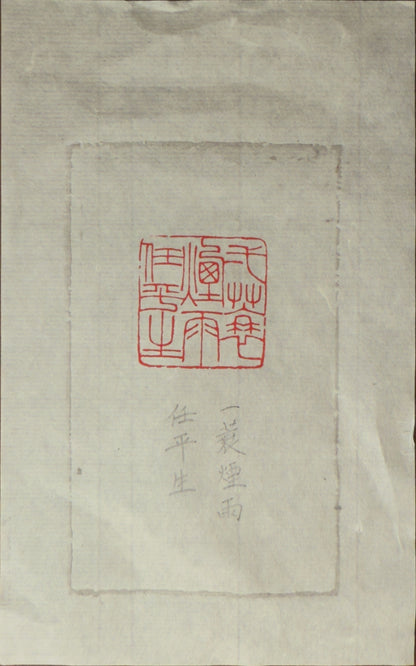 一蓑
煙雨
任平生
一蓑煙雨
任平生